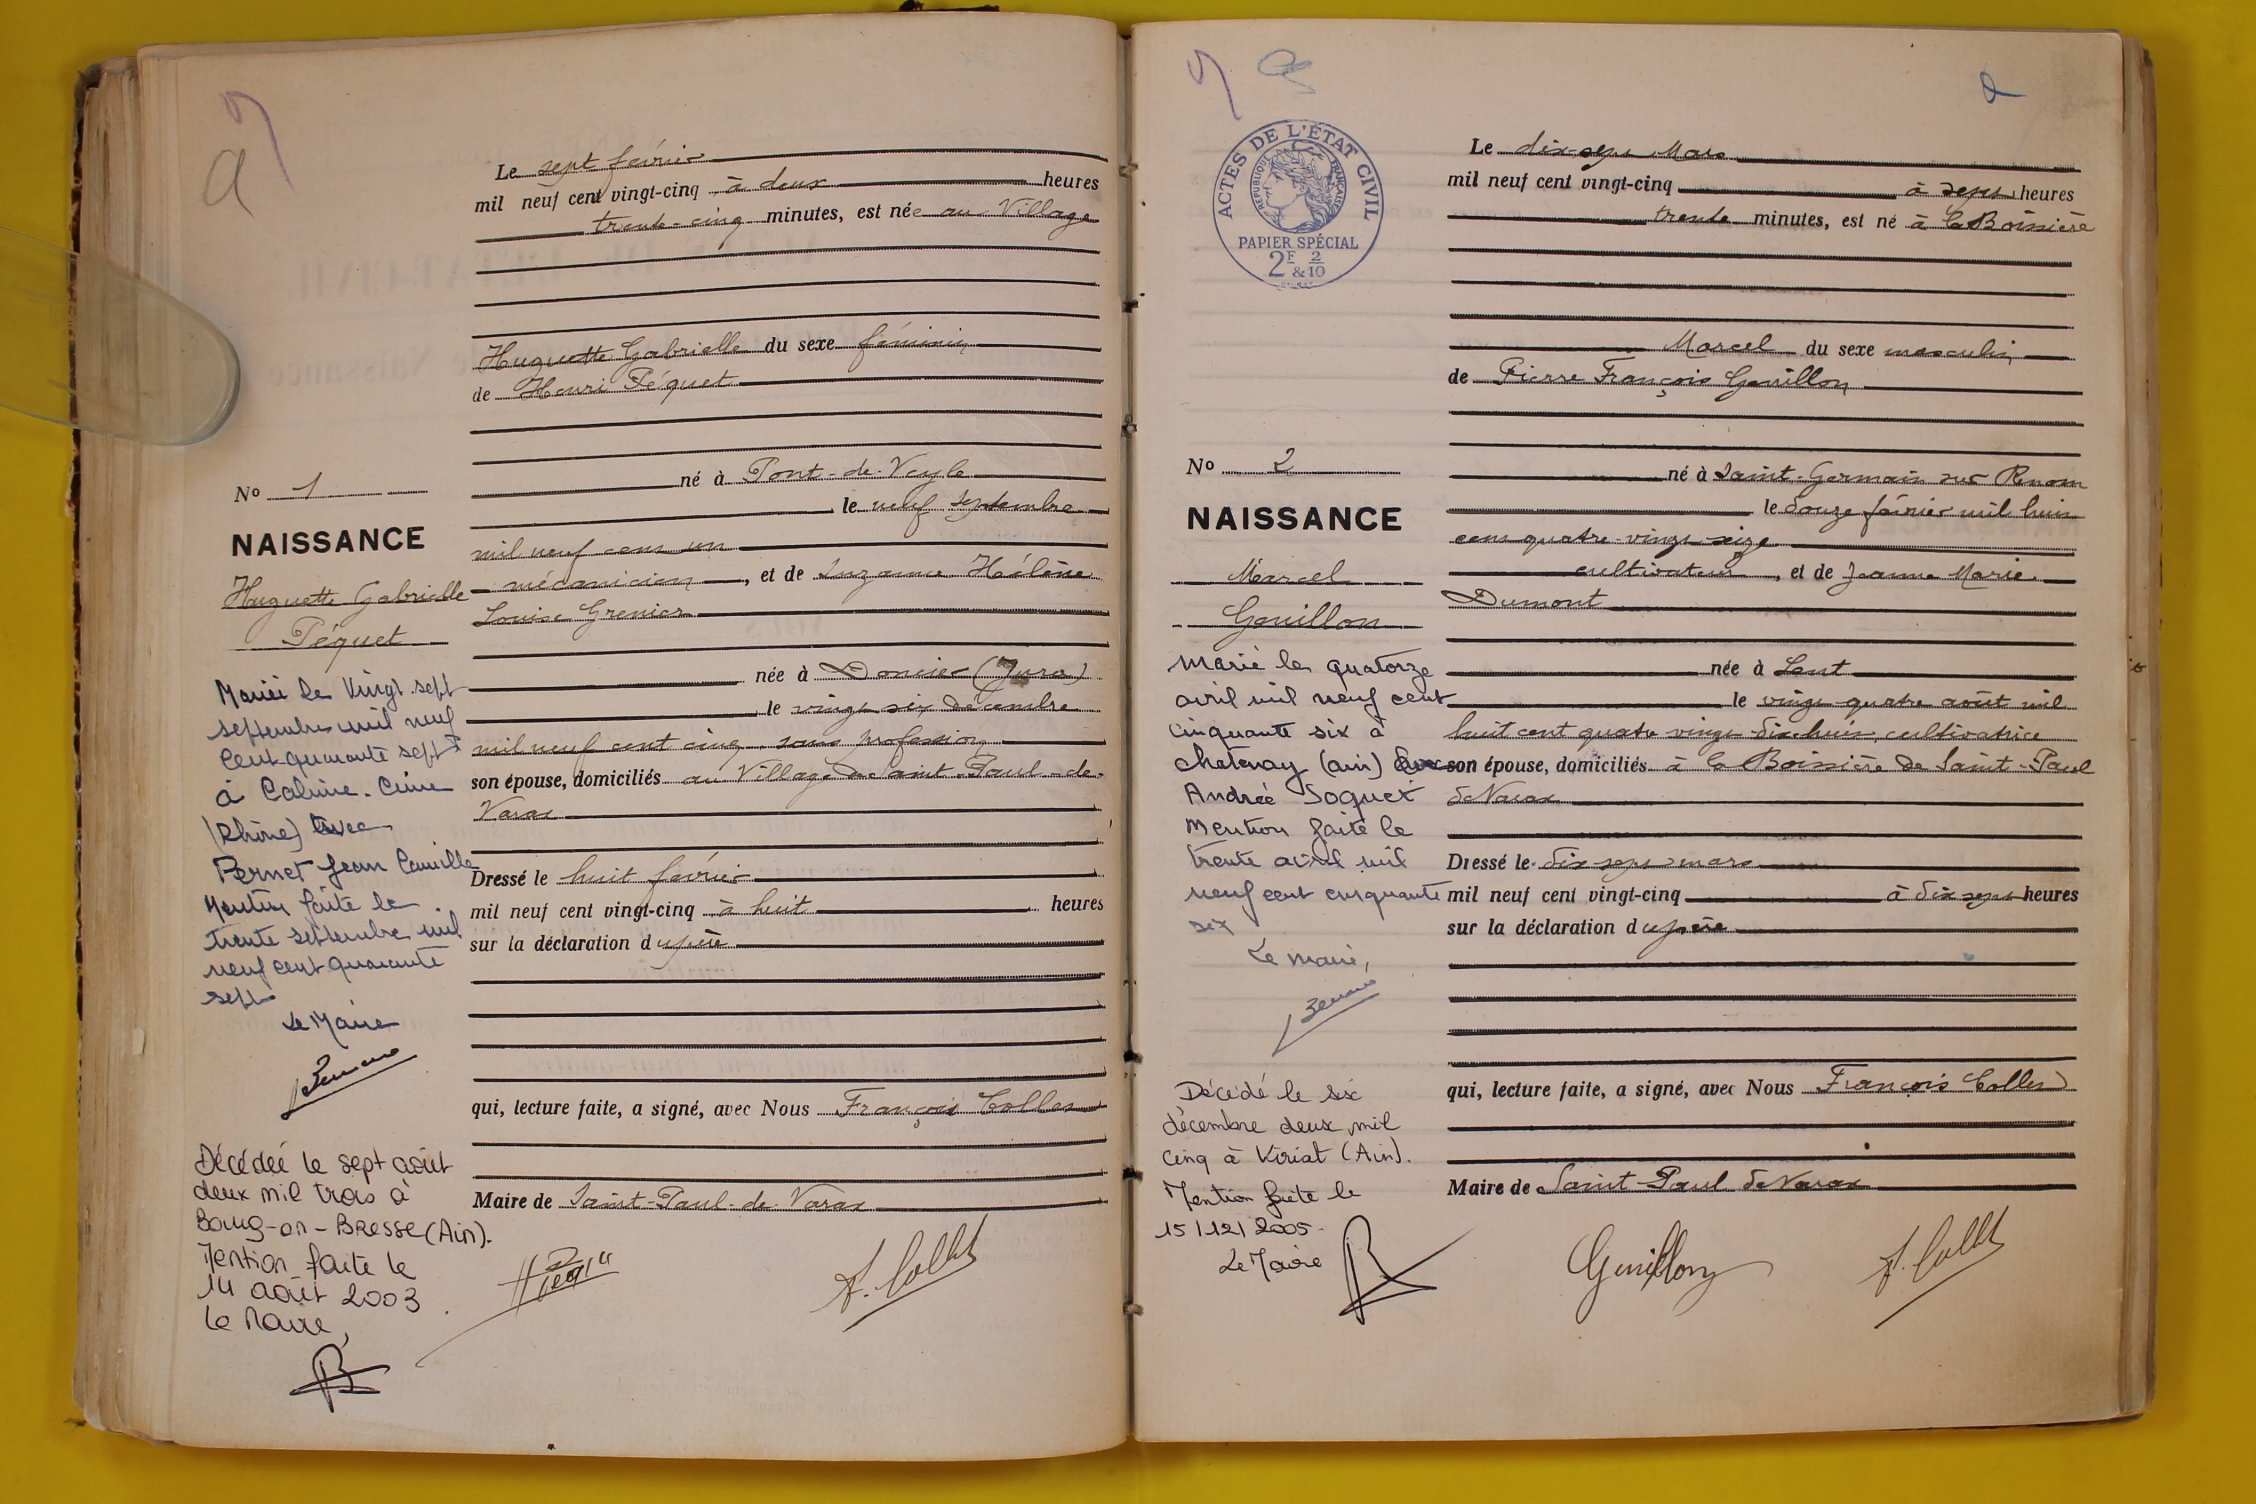 Le sept février
mil neuf cent vingt-cinq à deux heures
trente-cinq minutes, est née au Village
Huguette Gabrielle du sexe féminin
de Henri Péquet
né à Pont-de-Veyle
le neuf septembre
mil neuf cent un
mécanicien, et de Suzanne Hélène
Louise Grenier
née à Domier (Jura)
le vingt six décembre
mil neuf cent cinq, sans profession
son épouse, domiciliés au Village de Saint-Paul-de-
Varax
Dressé le huit février
mil neuf cent vingt-cinq à huit heures
sur la déclaration du père
qui, lecture faite, a signé, avec Nous François Collet
Maire de Saint-Paul-de-Varax
F. Collet
No 1
NAISSANCE
Huguette Gabrielle
Péquet
Mariée le Vingt-sept
septembre mil neuf
cent quarante sept
à Caluire-Cuire
(Rhône) avec
Pernet Jean Camille
Mention faite le
trente septembre mil
neuf cent quarante
sept
Le Maire
Décédée le sept août
deux mil trois à
Bourg-en-Bresse (Ain).
Mention faite le
14 août 2003
Le Maire,
ACTES DE L'ÉTAT CIVIL
RÉPUBLIQUE FRANÇAISE
PAPIER SPÉCIAL
2F & 2/10
Le dix-sept Mars
mil neuf cent vingt-cinq à sept heures
trente minutes, est né à la Boissière
Marcel du sexe masculin
de Pierre François Genillon
né à Saint-Germain sur Renom
le douze février mil huit
cent quatre-vingt-seize
cultivateur, et de Jeanne Marie
Dumont
née à Lent
le vingt quatre août mil
huit cent quatre vingt dix-huit, cultivatrice
son épouse, domiciliés à la Boissière de Saint-Paul
de Varax
Dressé le dix-sept mars
mil neuf cent vingt-cinq à dix sept heures
sur la déclaration du père
qui, lecture faite, a signé, avec Nous François Collet
Maire de Saint-Paul de Varax
Genillon
F. Collet
No 2
NAISSANCE
Marcel
Genillon
Marié le quatorze
avril mil neuf cent
cinquante six à
Chatenay (ain) avec
Andrée Soquet
Mention faite le
trente avril mil
neuf cent cinquante
six
Le maire,
Décédé le six
décembre deux mil
cinq à Viriat (Ain).
Mention faite le
15/12/2005.
Le Maire